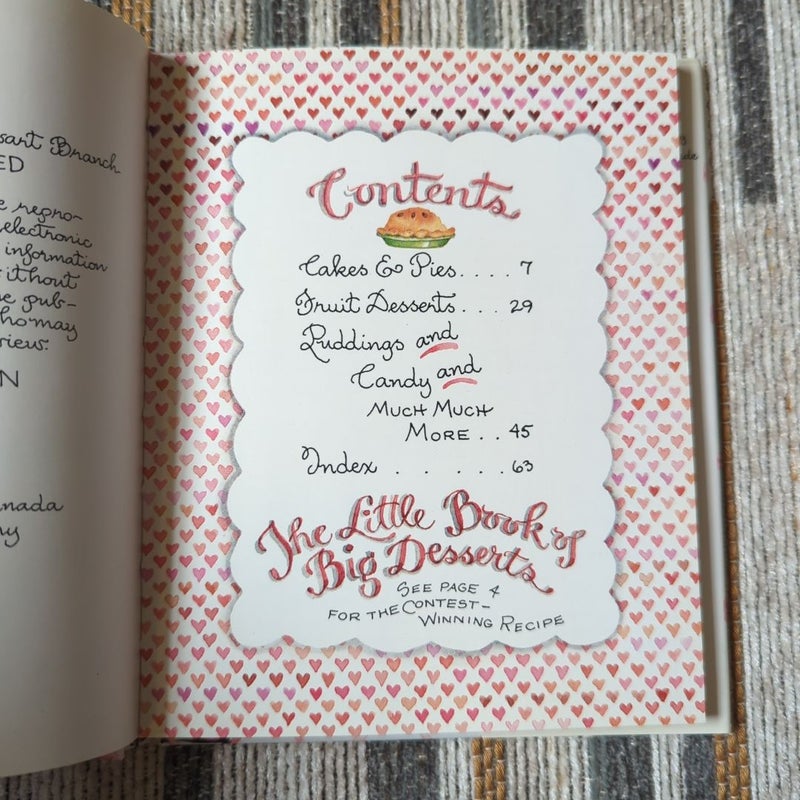 Branch
ED
e repro-
electronic
information
ithout
e pub-
ho may
view.
N
anada
ny
Contents
Cakes & Pies.... 7
Fruit Desserts... 29
Puddings and
Candy and
MUCH MUCH
MORE.. 45
Index ...... 63
The Little Book of
Big Desserts
SEE PAGE 4
FOR THE CONTEST-
WINNING RECIPE